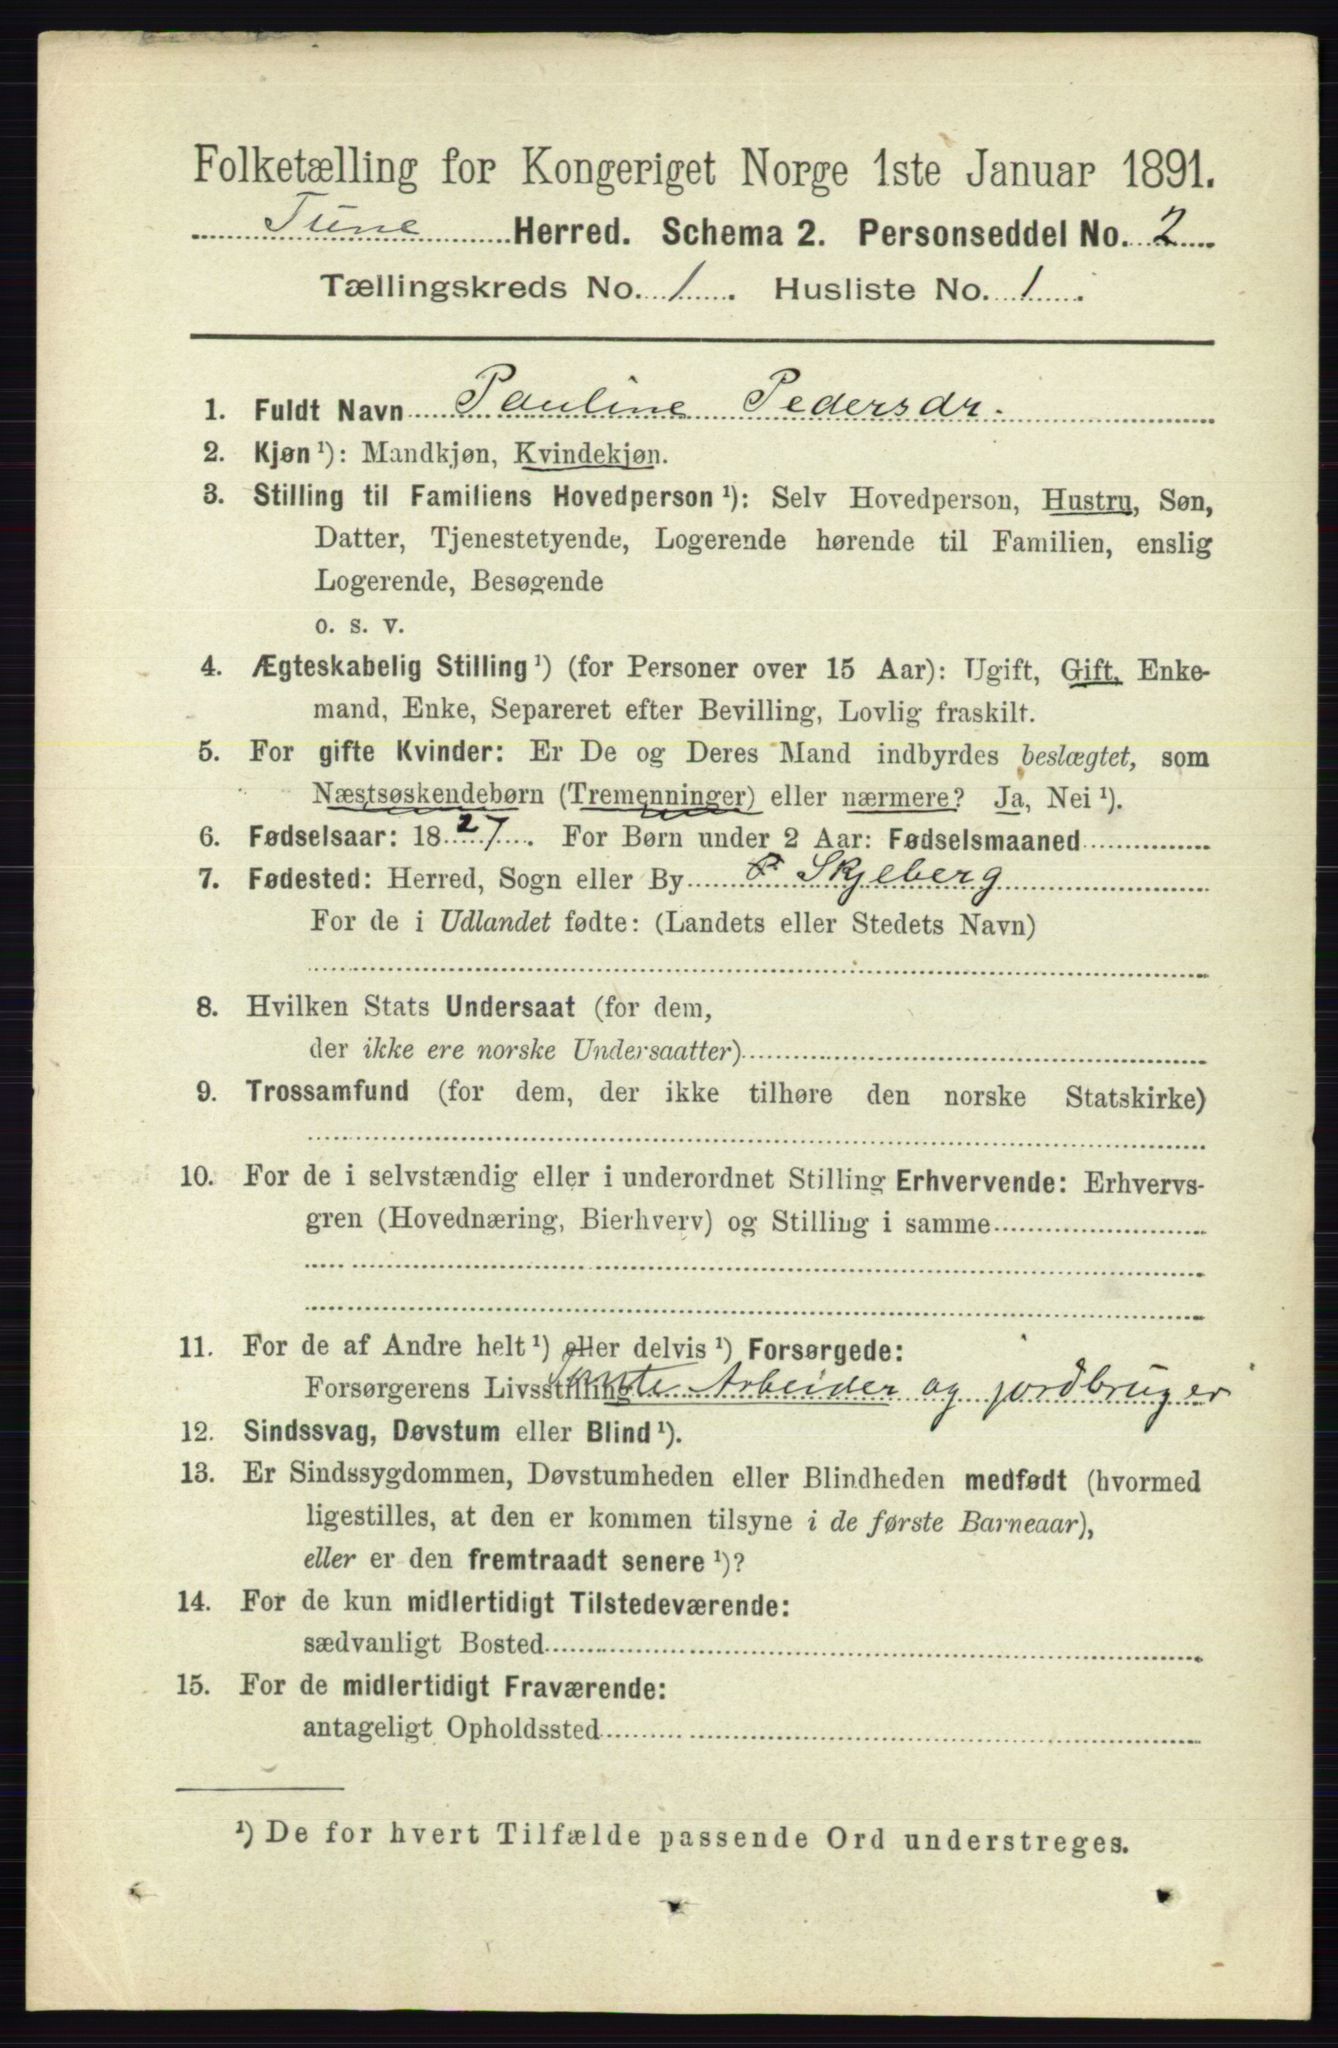 Folketælling for Kongeriget Norge 1ste Januar 1891.
Tune Herred. Schema 2. Personseddel No. 2
Tællingskreds No. 1. Husliste No. 1.
1. Fuldt Navn Pauline Pedersdr.
2. Kjøn ¹): Mandkjøn, Kvindekjøn.
3. Stilling til Familiens Hovedperson ¹): Selv Hovedperson, Hustru, Søn,
Datter, Tjenestetyende, Logerende hørende til Familien, enslig
Logerende, Besøgende
o. s. v.
4. Ægteskabelig Stilling ¹) (for Personer over 15 Aar): Ugift, Gift, Enke-
mand, Enke, Separeret efter Bevilling, Lovlig fraskilt.
5. For gifte Kvinder: Er De og Deres Mand indbyrdes beslægtet, som
Næstsøskendebørn (Tremenninger) eller nærmere? Ja, Nei ¹).
6. Fødselsaar: 1827. For Børn under 2 Aar: Fødselsmaaned
7. Fødested: Herred, Sogn eller By Skjeberg
For de i Udlandet fødte: (Landets eller Stedets Navn)
8. Hvilken Stats Undersaat (for dem,
der ikke ere norske Undersaatter)
9. Trossamfund (for dem, der ikke tilhøre den norske Statskirke)
10. For de i selvstændig eller i underordnet Stilling Erhvervende: Erhvervs-
gren (Hovednæring, Bierhverv) og Stilling i samme
11. For de af Andre helt ¹) eller delvis ¹) Forsørgede:
Forsørgerens Livsstilling Arbeider og jordbruger
12. Sindssvag, Døvstum eller Blind ¹).
13. Er Sindssygdommen, Døvstumheden eller Blindheden medfødt (hvormed
ligestilles, at den er kommen tilsyne i de første Barneaar),
eller er den fremtraadt senere ¹)?
14. For de kun midlertidigt Tilstedeværende:
sædvanligt Bosted
15. For de midlertidigt Fraværende:
antageligt Opholdssted
¹) De for hvert Tilfælde passende Ord understreges.